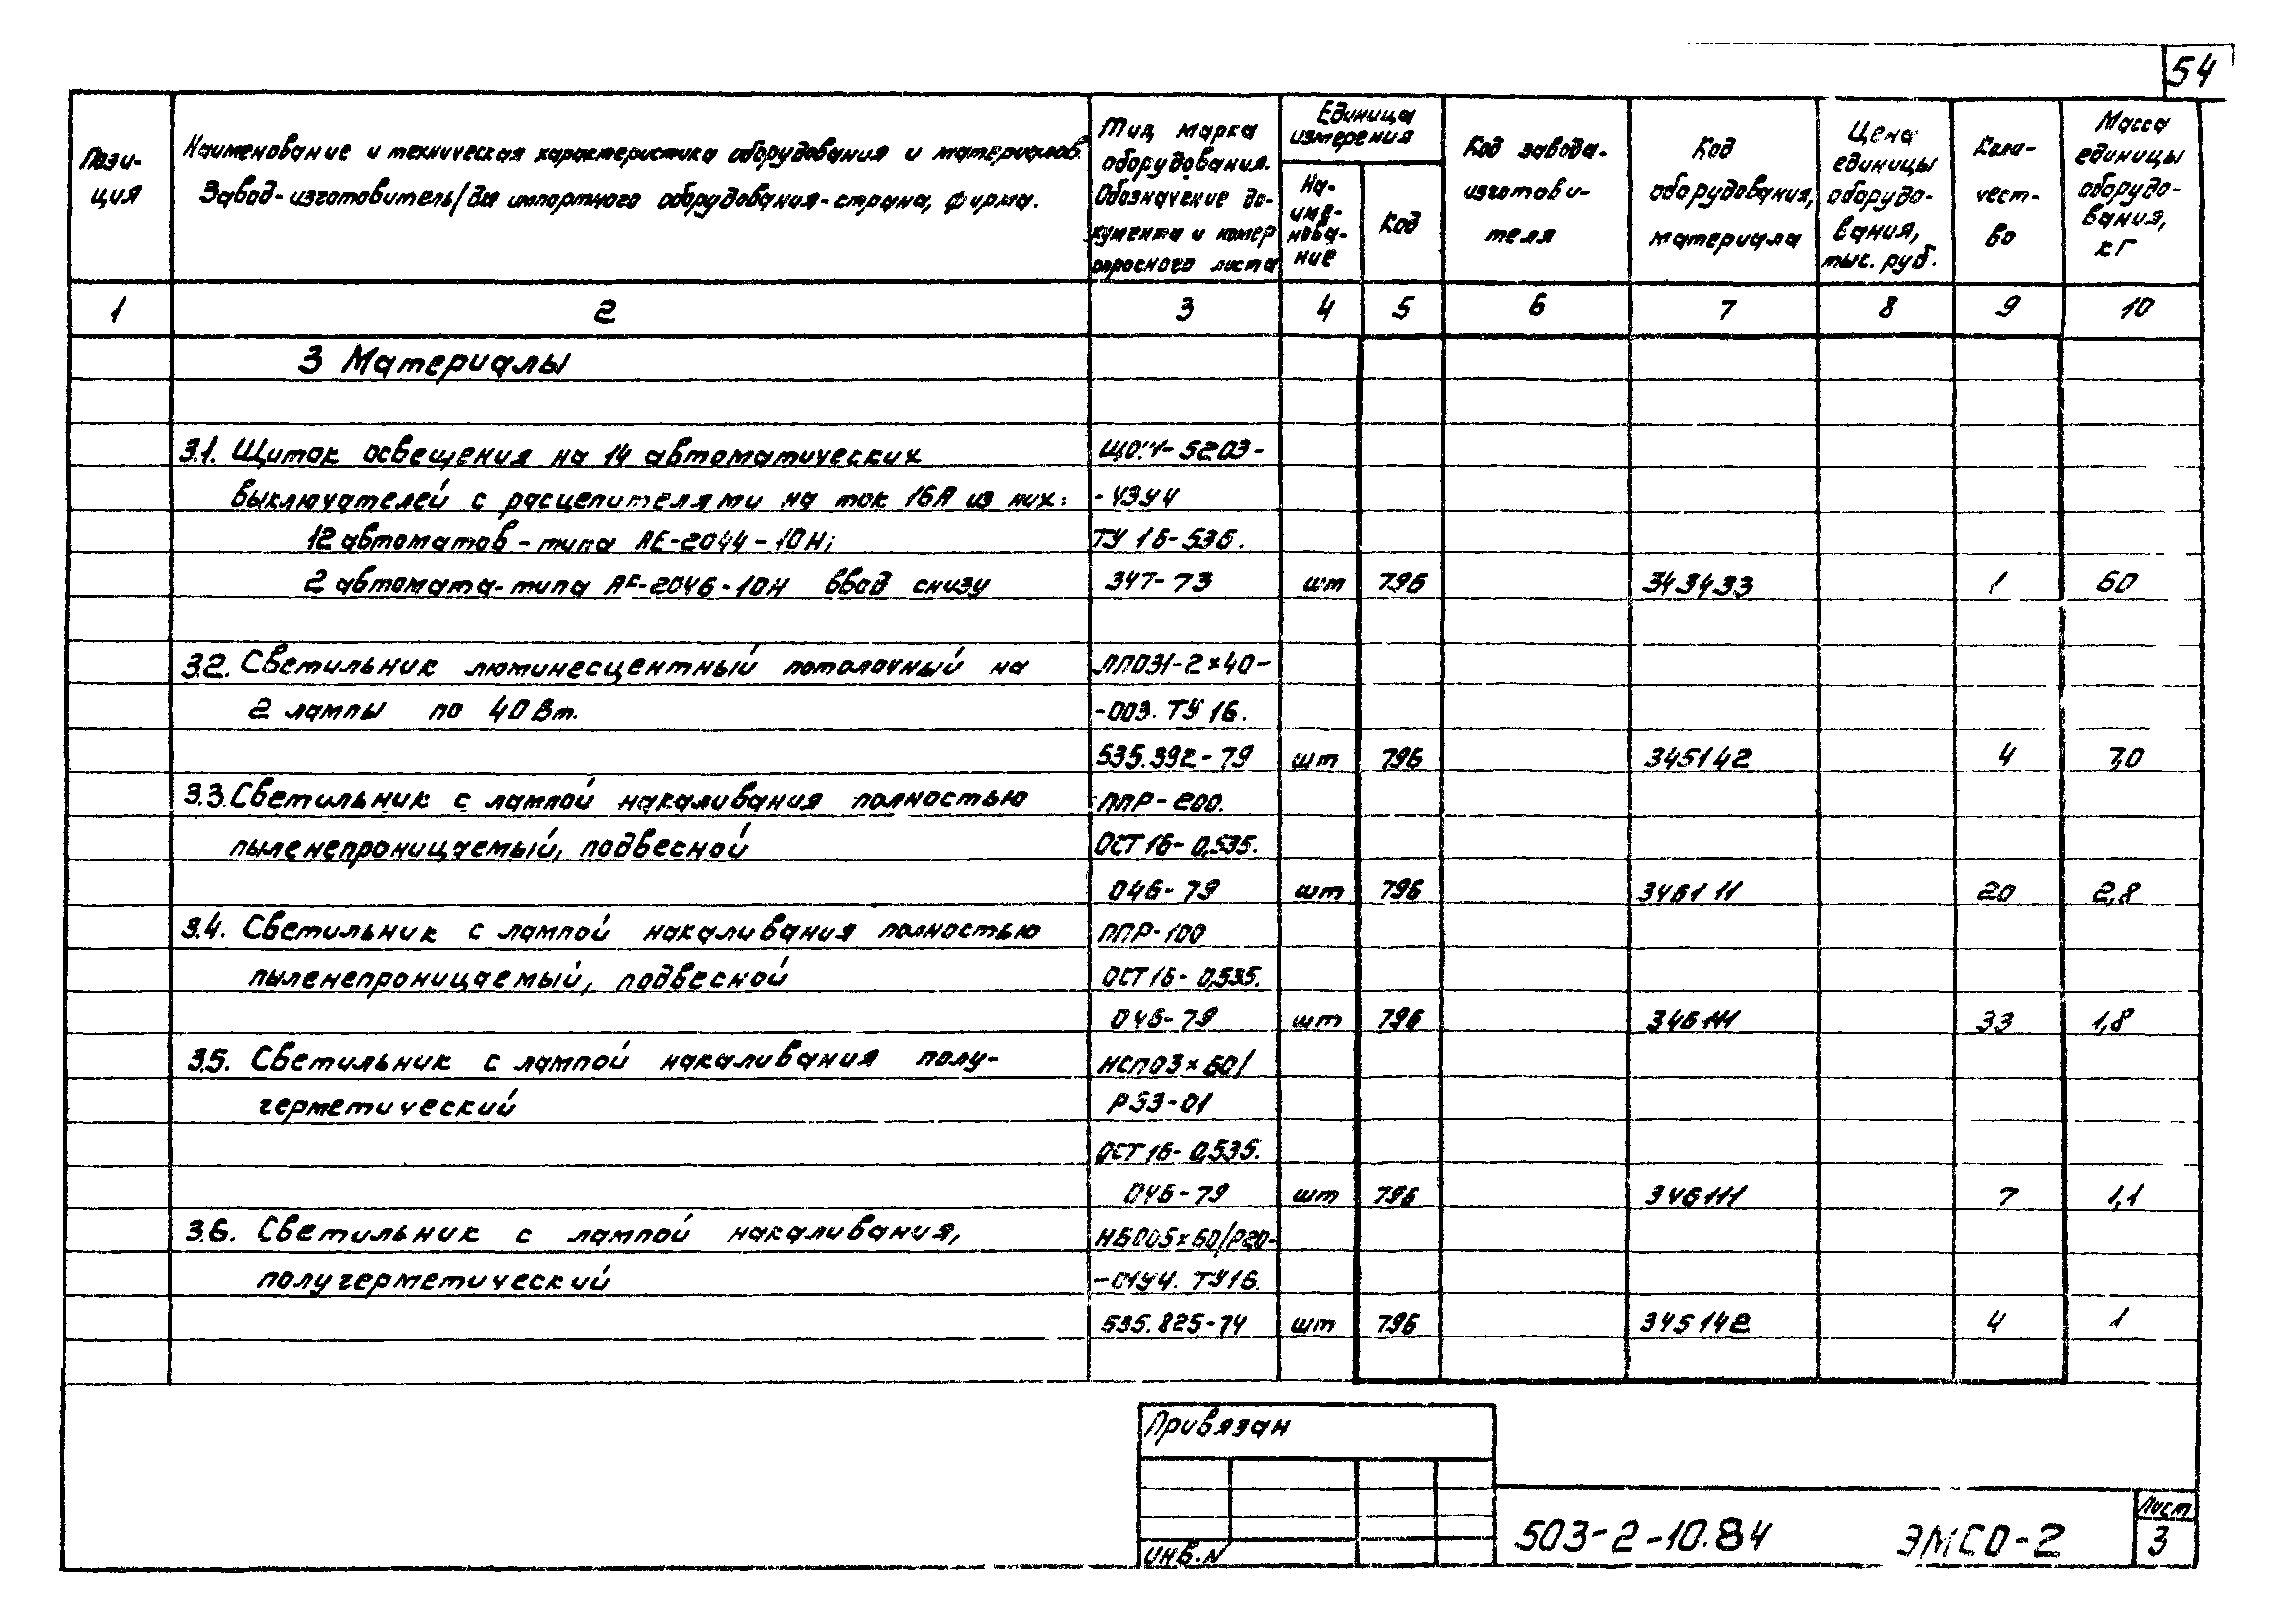 54
Пози-
ция
Наименование и техническая характеристика оборудования и материалов.
Завод-изготовитель/для импортного оборудования-страна, фирма.
Тип, марка
оборудования.
Обозначение до-
кумента и номер
опросного листа
Единица
измерения
На-
име-
нова-
ние
Код
Код завода-
изготови-
теля
Код
оборудования,
материала
Цена
единицы
оборудо-
вания,
тыс. руб.
Коли-
чест-
во
Масса
единицы
оборудо-
вания,
кг
1 2 3 4 5 6 7 8 9 10
3 Материалы
3.1. Щиток освещения на 14 автоматических
выключателей с расцепителями на ток 16А из них: -43У4
12 автоматов - типа АЕ-2044-10Н; ТУ 16-536.
2 автомата-типа АЕ-2046-10Н ввод снизу 347-73 шт 796 343433 1 60
3.2. Светильник люминесцентный потолочный на ЛПО31-2×40-
2 лампы по 40 Вт. -003. ТУ 16.
535.392-79 шт 796 345142 4 7,0
3.3. Светильник с лампой накаливания полностью ППР-200.
пыленепроницаемый, подвесной ОСТ 16-0,535.
046-79 шт 796 346111 20 2,8
3.4. Светильник с лампой накаливания полностью ППР-100
пыленепроницаемый, подвесной ОСТ 16-0,535.
046-79 шт 796 346111 33 1,8
3.5. Светильник с лампой накаливания полу- НСП03×60/
герметический Р53-01
ОСТ 16-0,535.
046-79 шт 796 346111 7 1,1
3.6. Светильник с лампой накаливания, НБО05×60/Р20-
полугерметический -01У4. ТУ16.
535.825-74 шт 796 345142 4 1
Привязан
инв. N
503-2-10.84 ЭМСО-2
Лист
3